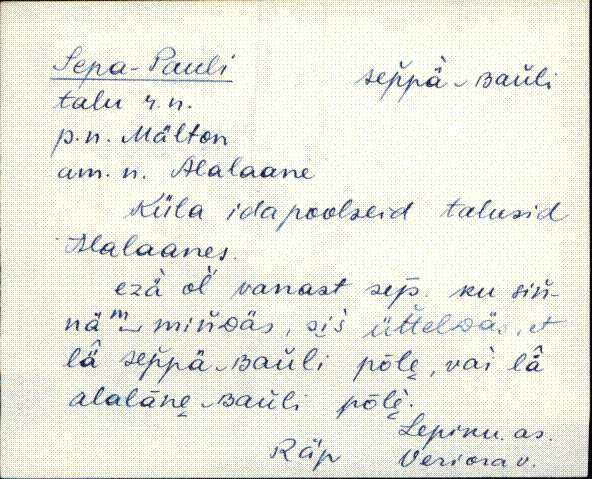 Sepa-Pauli sep̆p̆ä‿ʙaŭli
talu r.n.
p.n. Mälton
am. n. Alalaane
Küla idapoolseid talusid
Alalaanes.
ezä òl̆ vanast sep̆. ku siň-
nä m‿ miňᴅäs, si̬i̬s üt̆t̆elᴅäs, et
lâ sep̆p̆ä‿ʙaŭli põle̬, vai lâ
alalāne̬‿ʙaŭli põle̬.
Lepiku. as.
Räp Veriora v.